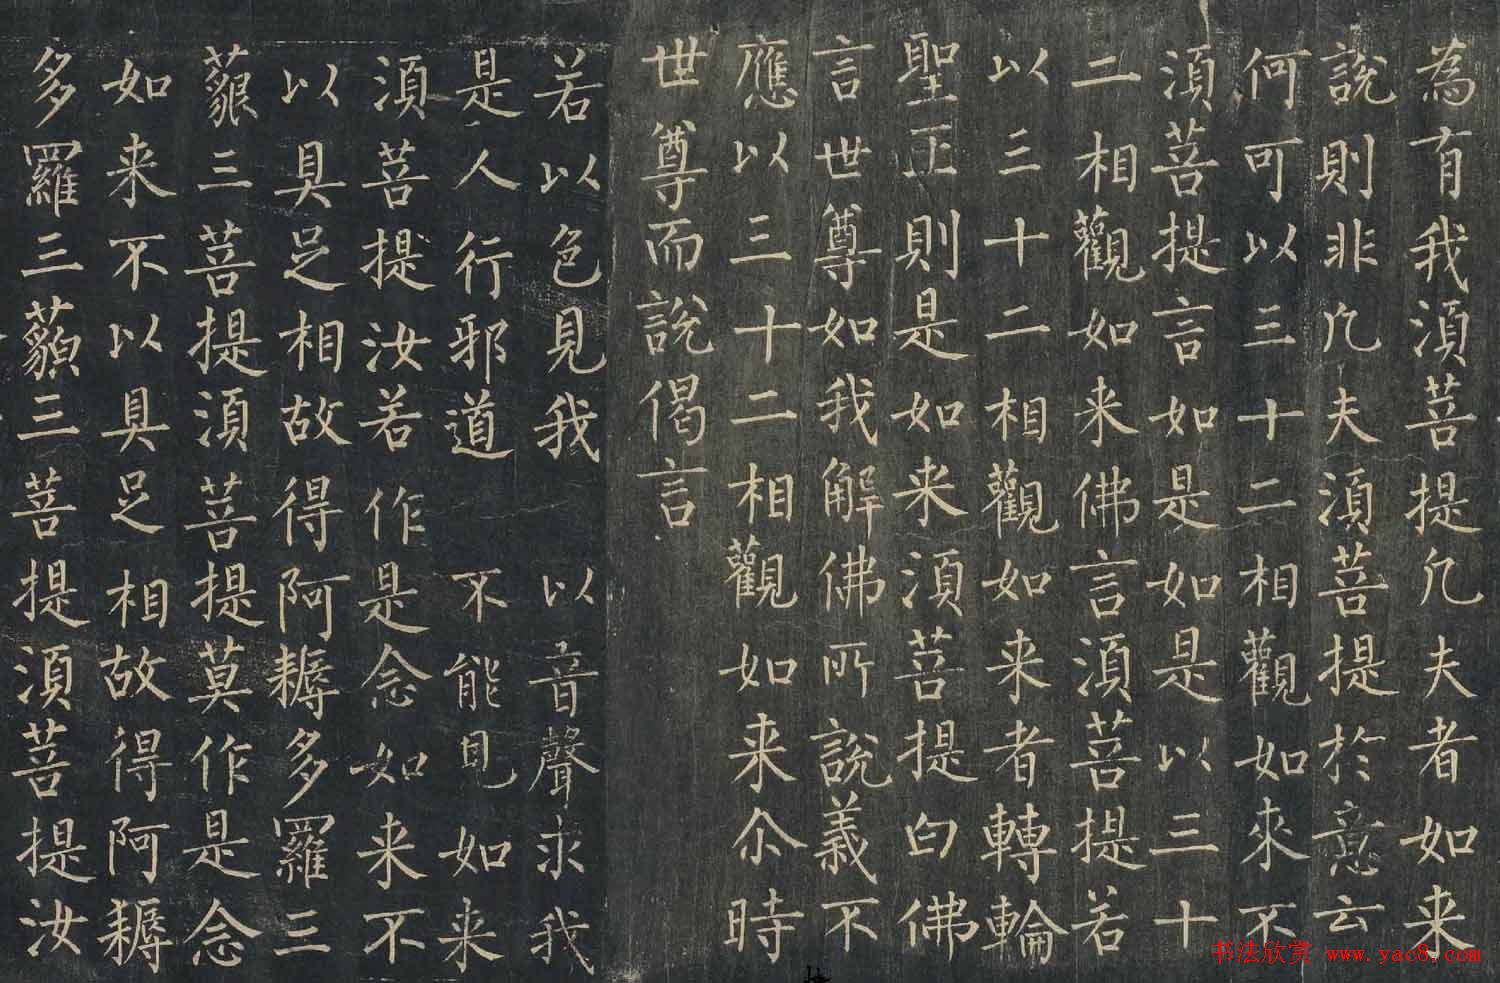 為有我須菩提凡夫者如来
說則非凡夫須菩提於意云
何可以三十二相觀如來不
須菩提言如是如是以三十
二相觀如来佛言須菩提若
以三十二相觀如来者轉輪
聖王則是如来須菩提白佛
言世尊如我解佛所說義不
應以三十二相觀如来尒時
世尊而說偈言
若以色見我 以音聲求我
是人行邪道 不能見如来
須菩提汝若作是念如来不
以具足相故得阿耨多羅三
藐三菩提須菩提莫作是念
如来不以具足相故得阿耨
多羅三藐三菩提須菩提汝
书法欣赏 www.yac8.com